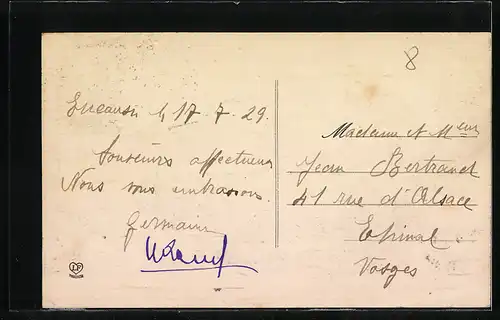 Encausse, 17-7-29.
Souvenirs affectueux
Nous vous embrassons.
Germaine
8
Madame et Meur
Jean Bertrand
41 rue d'Alsace
Epinal
Vosges